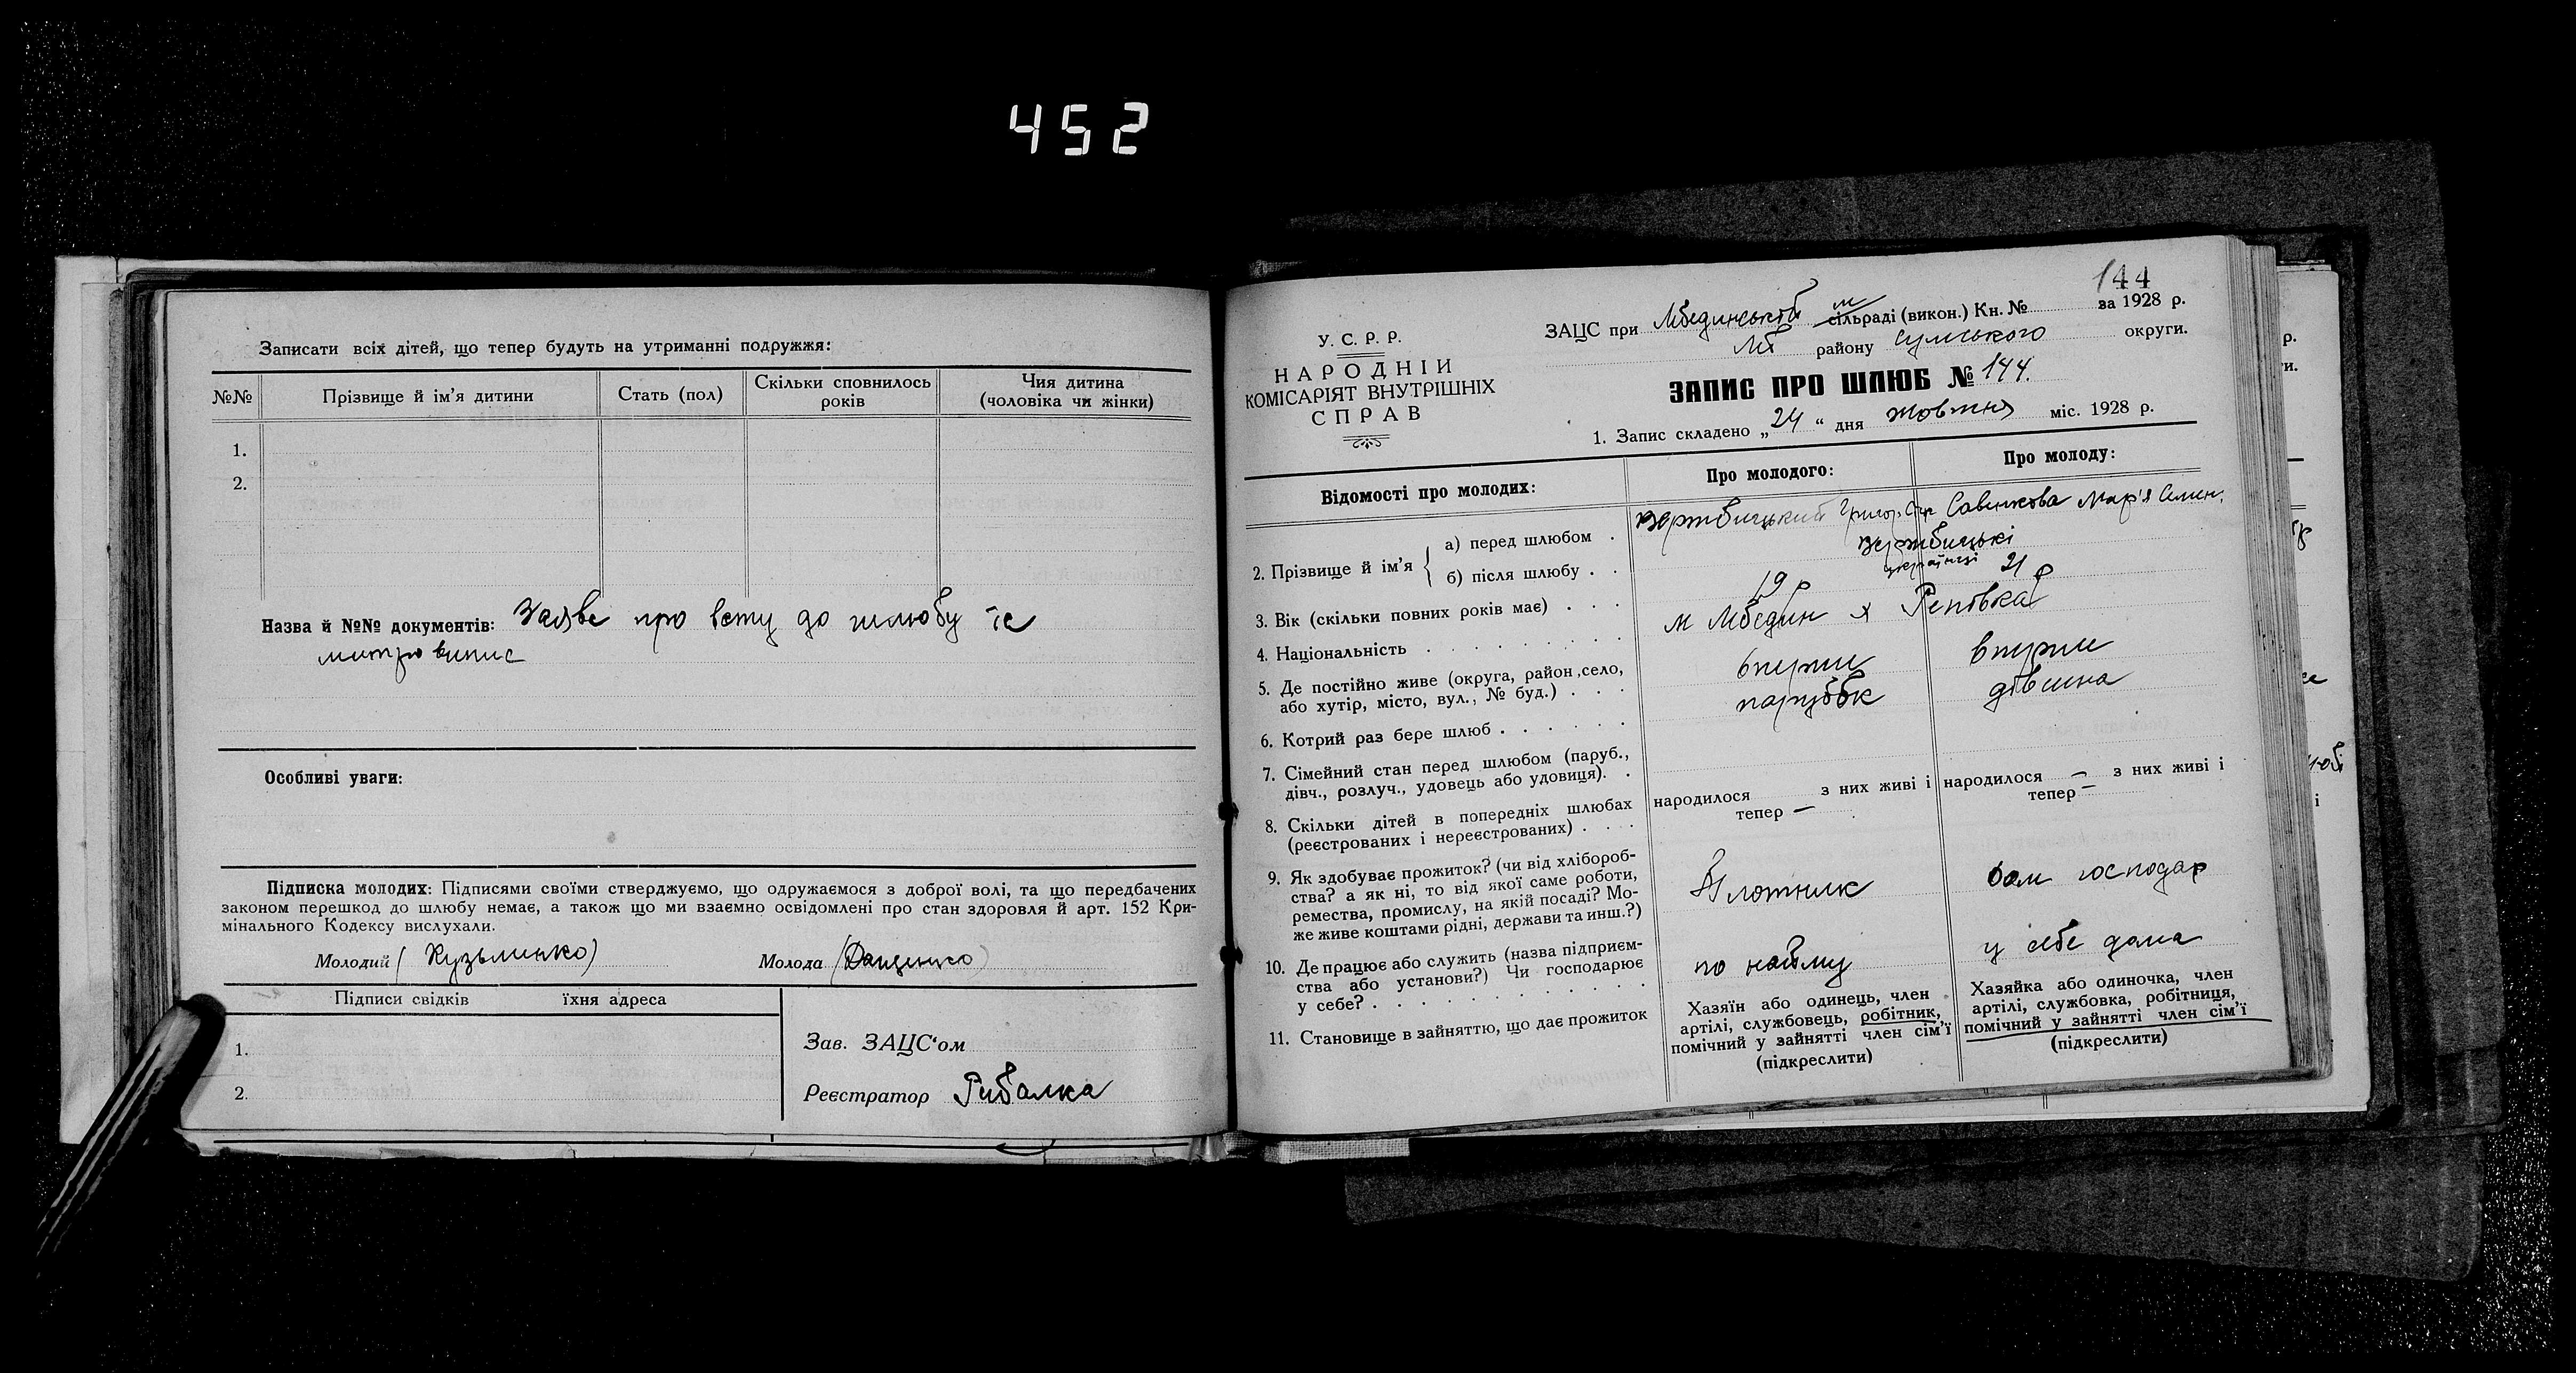 452
Записати всіх дітей, що тепер будуть на утриманні подружжя:
№№ Прізвище й ім'я дитини Стать (пол) Скільки сповнилось років Чия дитина (чоловіка чи жінки)
1.
2.
Назва й №№ документів: Заява про вступ до шлюбу
Особливі уваги:
Підписка молодих: Підписями своїми стверджуємо, що одружаємося з доброї волі, та що передбачених
законом перешкод до шлюбу немає, а також що ми взаємно освідомлені про стан здоровля й арт. 152 Кри-
мінального Кодексу вислухали.
Молодий (Кузьменко) Молода (Даценко)
Підписи свідків їхня адреса
1.
2.
Зав. ЗАЦС'ом
Реєстратор Рибалка
144
У. С. Р. Р.
НАРОДНІЙ
КОМІСАРІЯТ ВНУТРІШНІХ
СПРАВ
ЗАЦС при Лебединській м сільраді (викон.) Кн. № за 1928 р.
Леб району Сумського округи.
ЗАПИС ПРО ШЛЮБ № 144.
1. Запис складено „24“ дня жовтня міс. 1928 р.
Відомості про молодих: Про молодого: Про молоду:
2. Прізвище й ім'я
а) перед шлюбом . Вержбицький Григор. Савенкова Мар'я Семен.
б) після шлюбу . . Вержбицькі
3. Вік (скільки повних років має) . . . 19 р 21 р
4. Національність українці
5. Де постійно живе (округа, район, село,
або хутір, місто, вул., № буд.) . . . м Лебедин х Репівка
6. Котрий раз бере шлюб . . . . . . вперше вперше
7. Сімейний стан перед шлюбом (паруб.,
дівч., розлуч., удовець або удовиця). . парубок дівчина
8. Скільки дітей в попередніх шлюбах
(реєстрованих і нереєстрованих) . . .
народилося з них живі і
тепер —
народилося — з них живі і
тепер —
9. Як здобуває прожиток? (чи від хлібороб-
ства? а як ні, то від якої саме роботи,
ремества, промислу, на якій посаді? Мо-
же живе коштами рідні, держави та инш.?)
Плотник
дом господар
10. Де працює або служить (назва підприєм-
ства або установи?) Чи господарює
у себе? . . . . . . . . . . . .
по найму
у себе дома
11. Становище в зайняттю, що дає прожиток
Хазяїн або одинець, член
артілі, службовець, робітник,
помічний у зайнятті член сім'ї
(підкреслити)
Хазяйка або одиночка, член
артілі, службовка, робітниця,
помічний у зайнятті член сім'ї
(підкреслити)